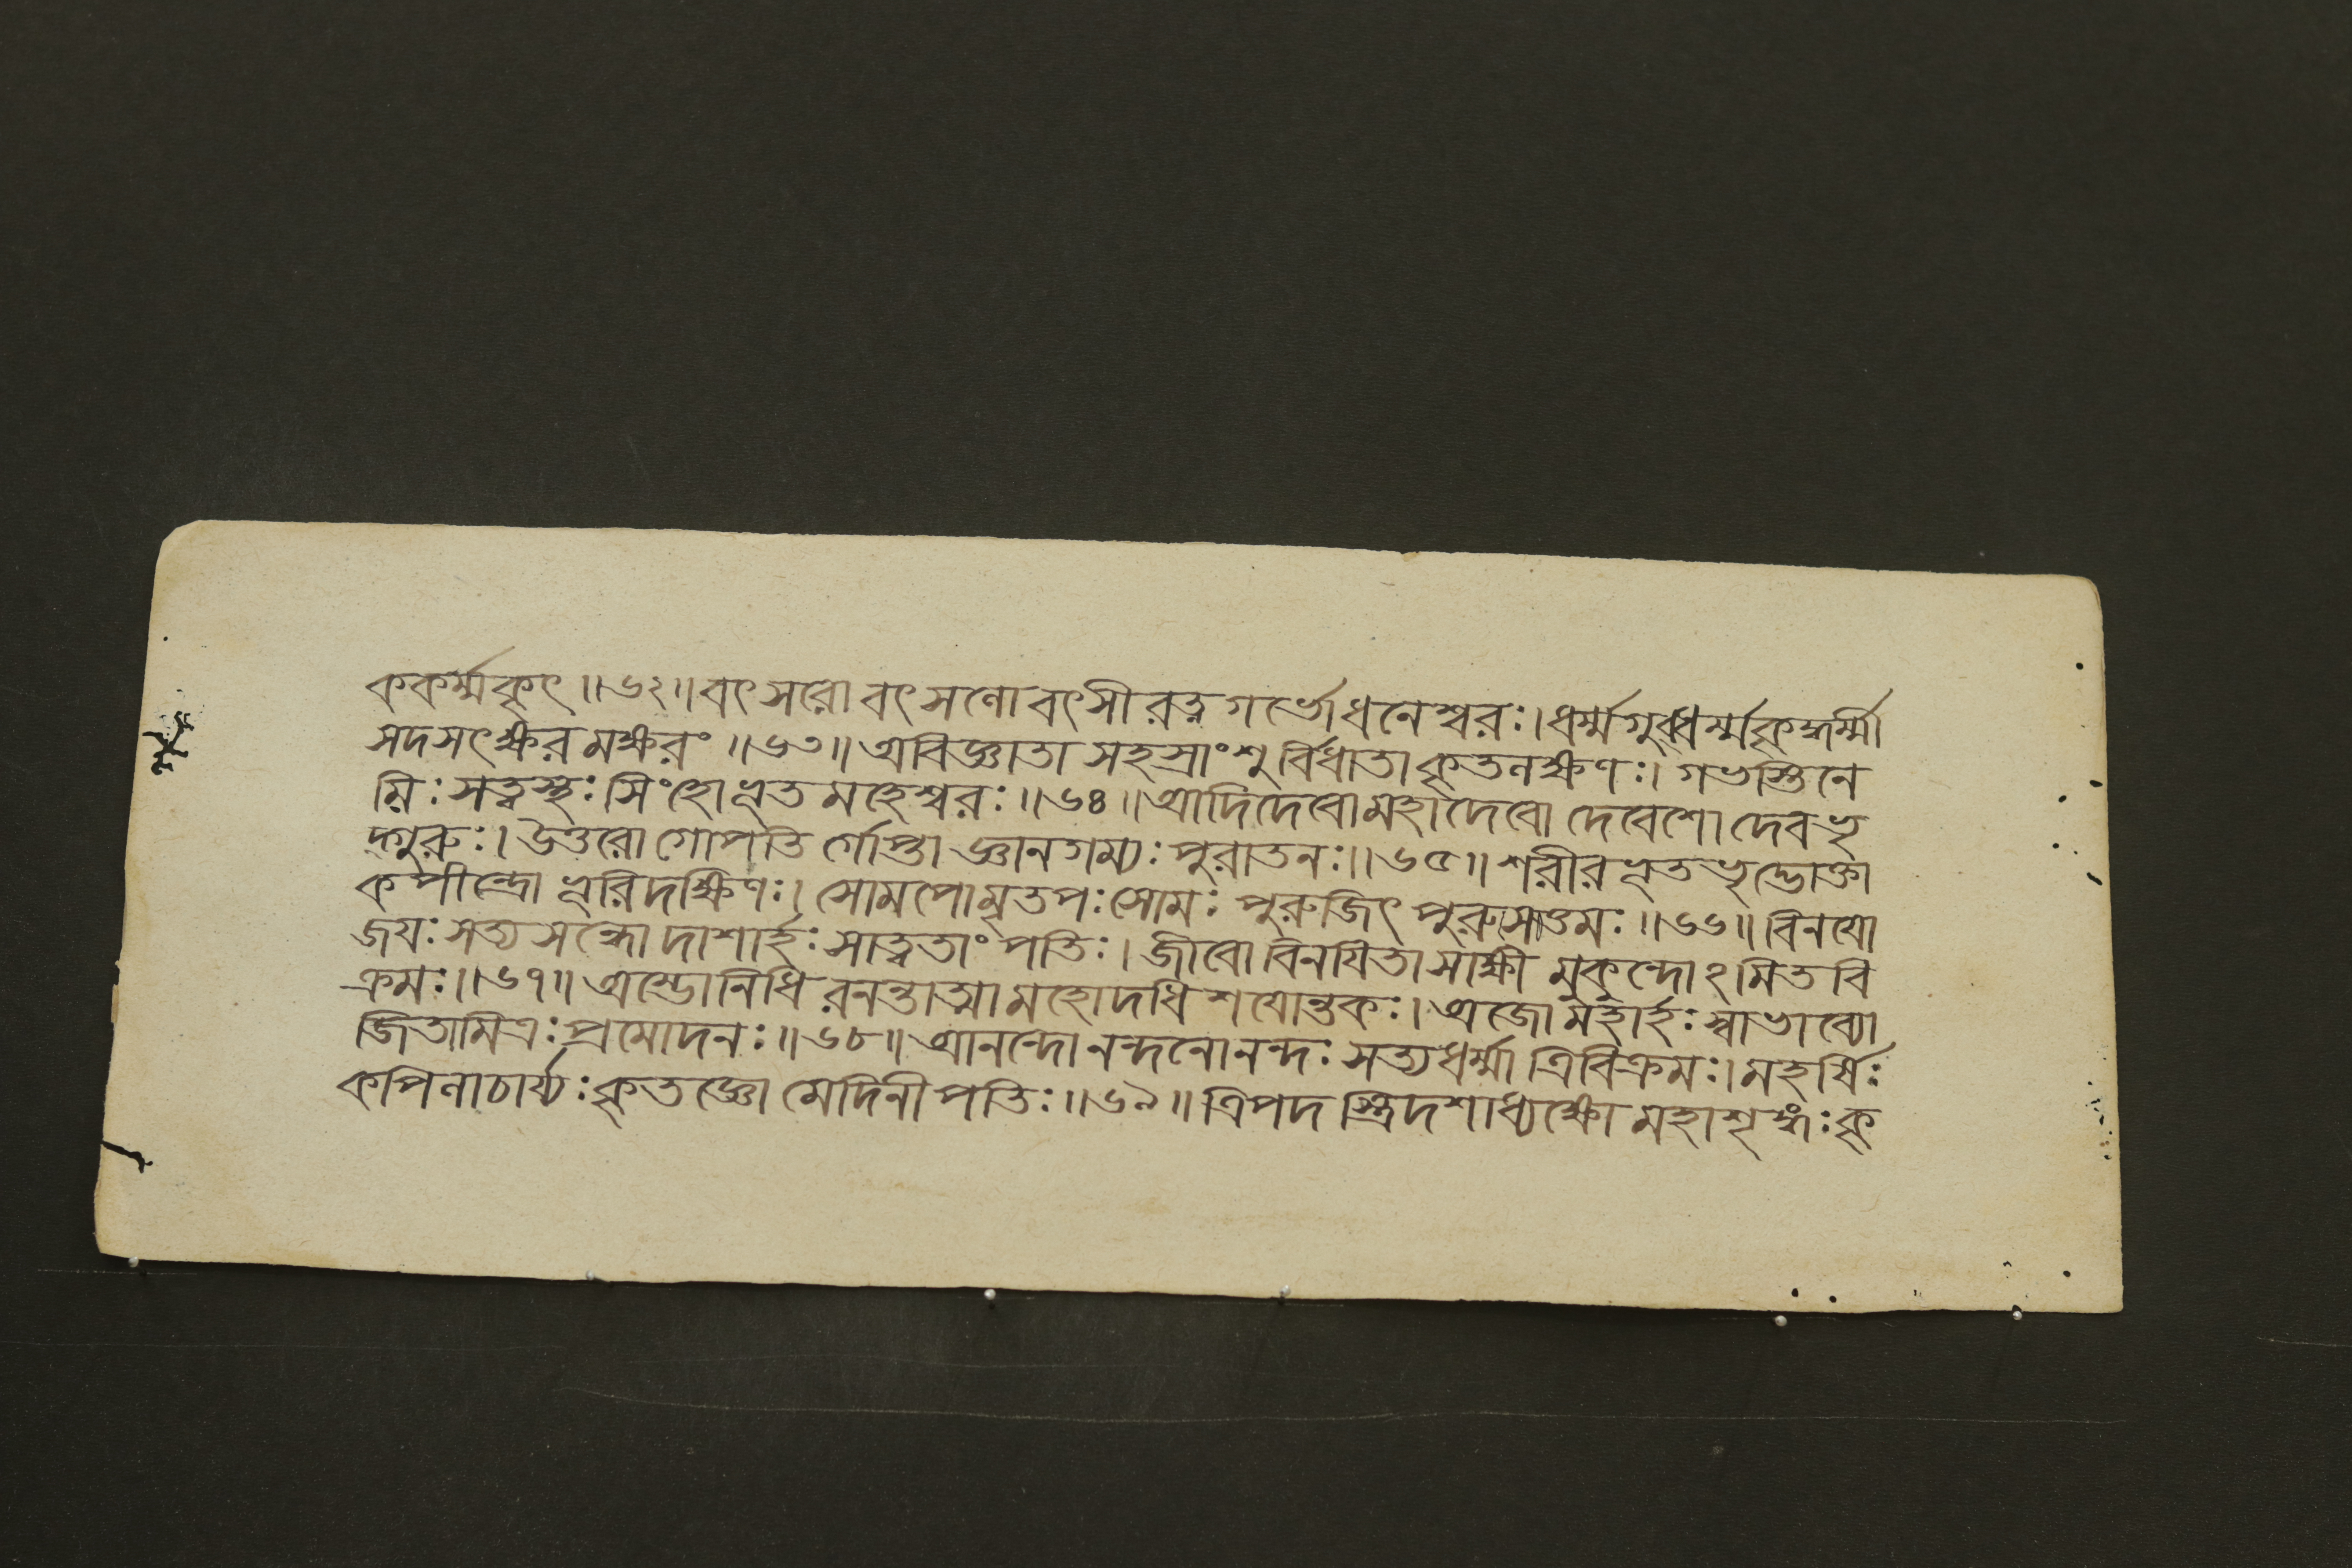 ককর্ম্মকৃৎ॥৬২॥বৎসরো বৎসলো বৎসী রত্নগর্ভো ধনেশ্বরঃ।ধর্ম্মগুব্ধর্ম্মকৃদ্ধর্ম্মী
সদসৎক্ষরমক্ষরং॥৬৩॥অবিজ্ঞাতা সহস্রাংশুর্বিধাতা কৃতলক্ষণঃ।গভস্তিনে
মিঃ সত্বস্থঃ সিংহো ভূতমহেশ্বরঃ॥৬৪॥আদিদেবো মহাদেবো দেবেশো দেবভৃ
দ্গুরুঃ।উত্তরো গোপতির্গোপ্তা জ্ঞানগম্যঃ পুরাতনঃ॥৬৫॥শরীরভূতভৃদ্ভোক্তা
কপীন্দ্রো ভূরিদক্ষিণঃ।সোমপোমৃতপঃ সোমঃ পুরুজিৎ পুরুসত্তমঃ॥৬৬॥বিনয়ো
জয়ঃ সত্যসন্ধো দাশার্হঃ সাত্বতাং পতিঃ।জীবো বিনয়িতা সাক্ষী মুকুন্দোঽমিতবি
ক্রমঃ॥৬৭॥অম্ভোনিধিরনন্তাত্মা মহোদধিশয়োন্তকঃ।অজো মহার্হঃ স্বাভাব্যো
জিতামিত্রঃ প্রমোদনঃ॥৬৮॥আনন্দো নন্দনো নন্দঃ সত্যধর্ম্মা ত্রিবিক্রমঃ।মহর্ষিঃ
কপিলাচার্য্যঃ কৃতজ্ঞো মেদিনীপতিঃ॥৬৯॥ত্রিপদস্ত্রিদশাধ্যক্ষো মহাশৃঙ্গঃ কৃ